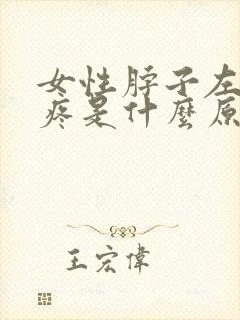 女性脖子左
疼是什麼原
王宏偉